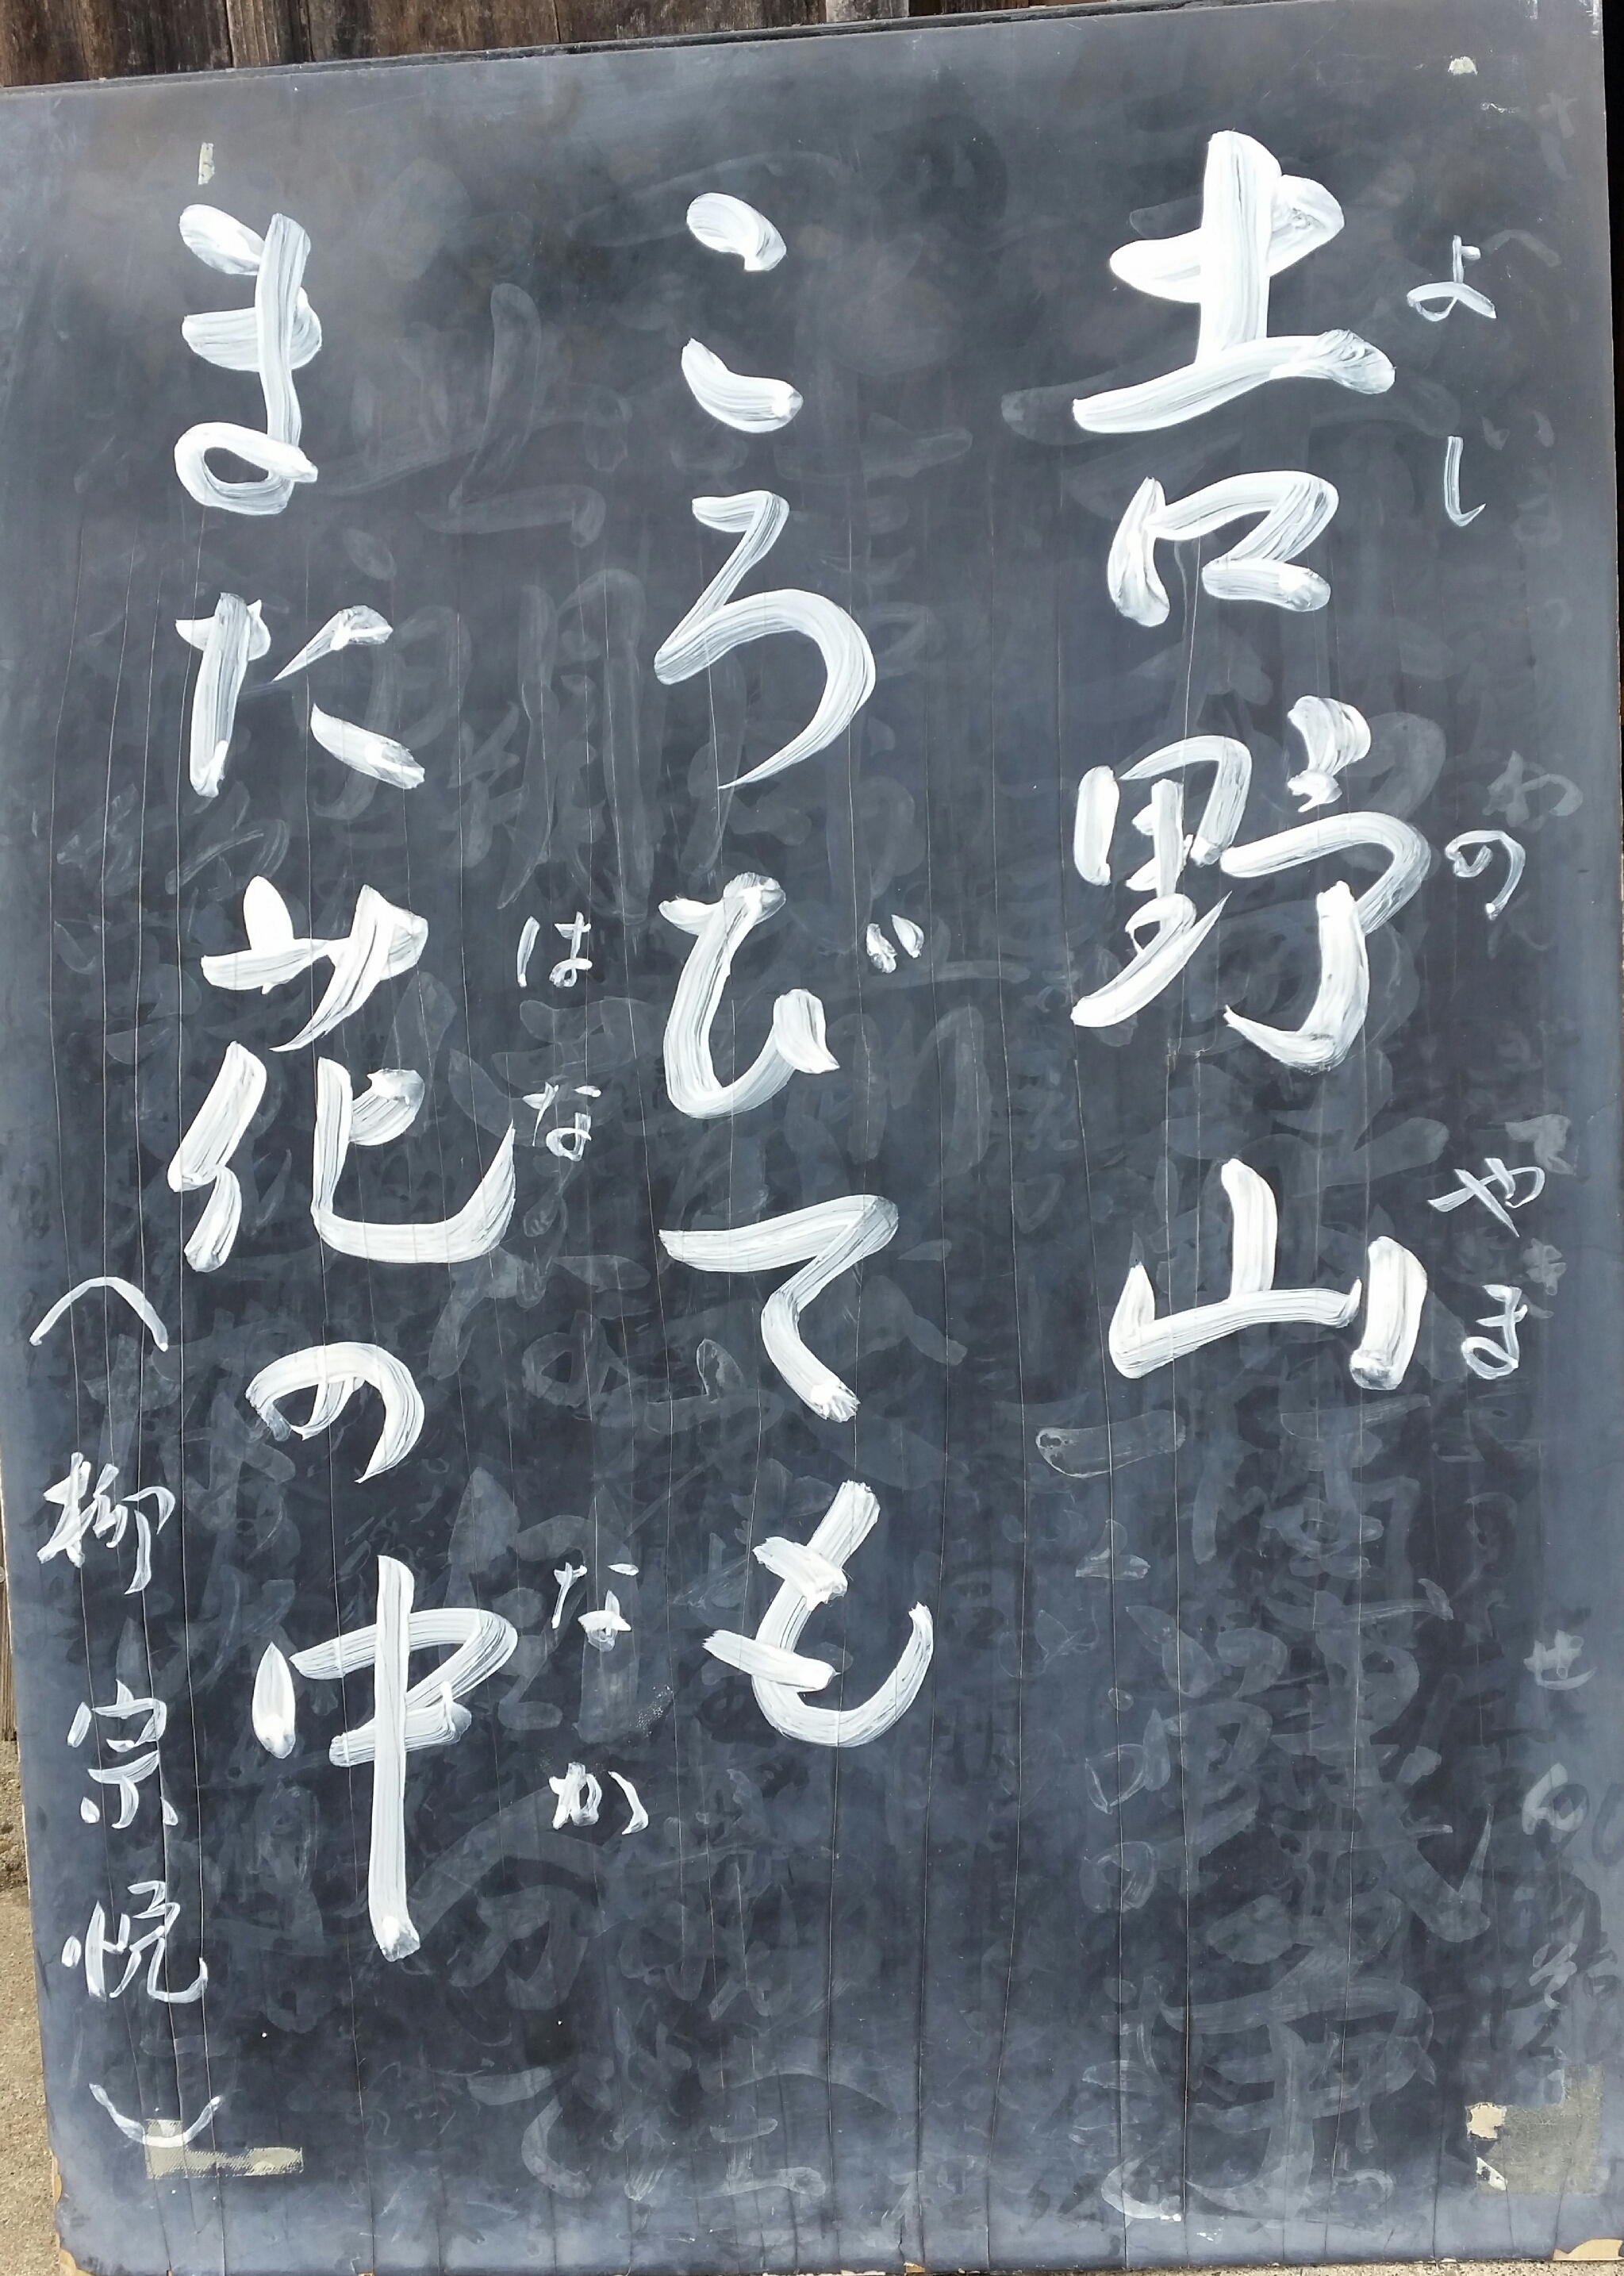 吉野山
よしのやま
ころびても
まだ花の中
はななか
(柳宗悦)